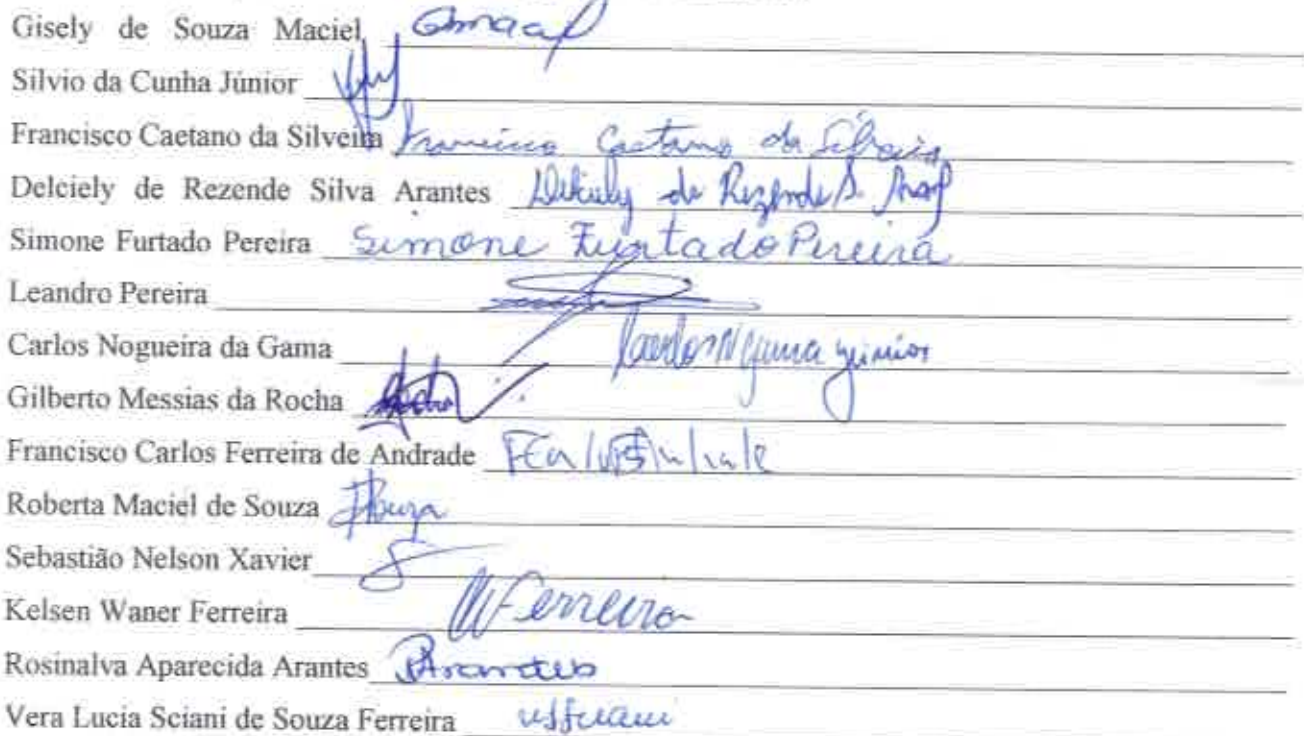 Gisely de Souza Maciel
Silvio da Cunha Júnior
Francisco Caetano da Silveira Francisco Caetano da Silveira
Delciely de Rezende Silva Arantes Delciely de Rezende S.
Simone Furtado Pereira Simone Furtado Pereira
Leandro Pereira
Carlos Nogueira da Gama Carlos N Gama Júnior
Gilberto Messias da Rocha
Francisco Carlos Ferreira de Andrade
Roberta Maciel de Souza
Sebastião Nelson Xavier
Kelsen Waner Ferreira Ferreira
Rosinalva Aparecida Arantes Arantes
Vera Lucia Sciani de Souza Ferreira